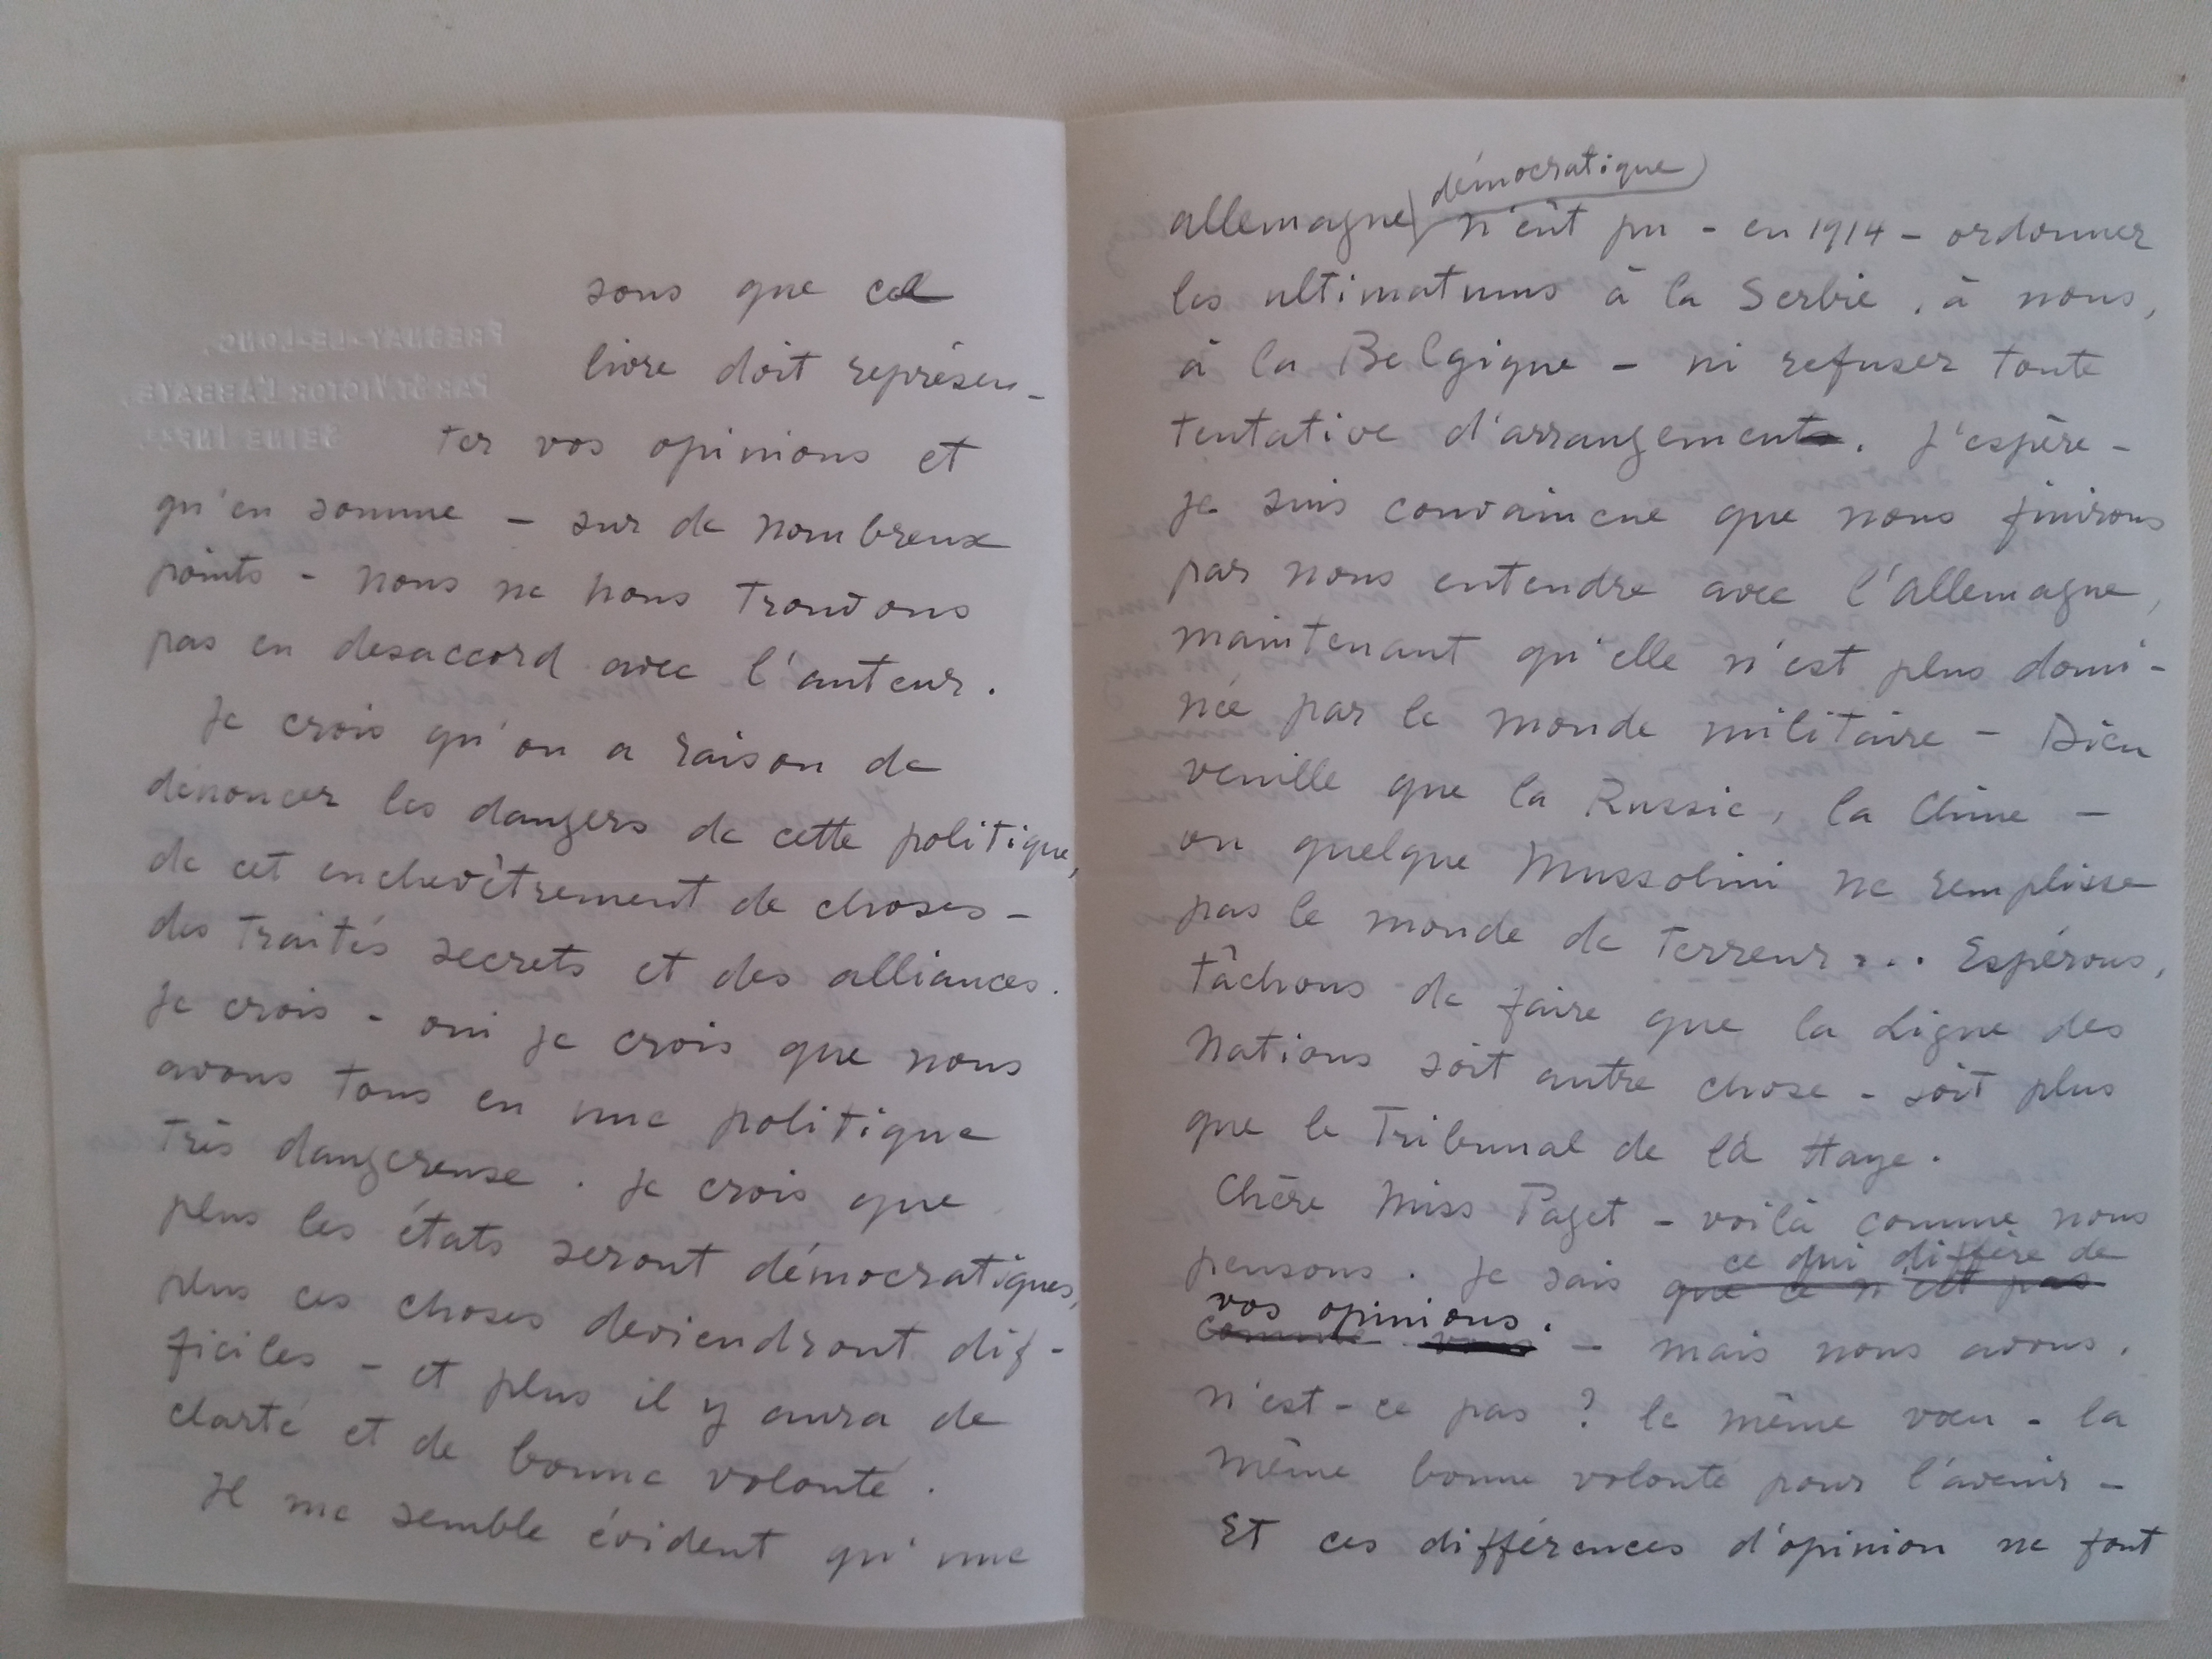 sons que ce
livre doit représen-
ter vos opinions et
qu'en somme - sur de nombreux
points - nous ne nous trouvons
pas en desaccord avec l'auteur.
Je crois qu'on a raison de
dénoncer les dangers de cette politique,
de cet enchevêtrement de choses -
des traités secrets et des alliances.
Je crois - oui je crois que nous
avons tous eu une politique
très dangereuse. Je crois que
plus les états seront démocratiques,
plus ces choses deviendront dif-
ficiles - et plus il y aura de
clarté et de bonne volonté.
Il me semble évident qu'une
FRESNAY-LE-LONG,
PAR ST VICTOR L'ABBAYE,
SEINE INFRE.
démocratique
allemagne n'eût pu - en 1914 - ordonner
les ultimatums à la Serbie, à nous,
à la Belgique - ni refuser toute
tentative d'arrangement. J'espère -
je suis convaincue que nous finirons
par nous entendre avec l'allemagne,
maintenant qu'elle n'est plus domi-
née par le monde militaire - Dieu
veuille que la Russie, la Chine -
ou quelque Mussolini ne remplisse
pas le monde de terreur... Espérons,
tâchons de faire que la Ligue des
Nations soit autre chose - soit plus
que le Tribunal de la Haye.
Chère Miss Paget - voilà comme nous
ce qui diffère de
pensons. Je sais que ce n'est pas
vos opinions.
comme vous - mais nous avons,
n'est-ce pas ? le même vœu - la
même bonne volonté pour l'avenir -
Et ces différences d'opinion ne font